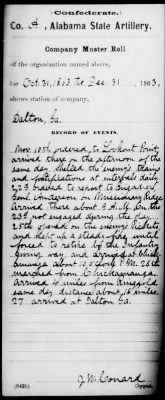 (Confederate.)
Co. A, Alabama State Artillery.
Company Muster Roll
of the organization named above,
for Oct. 31, 1863, to Dec. 31, 1863,
shows station of company,
Dalton, Ga.
RECORD OF EVENTS.
Nov 12th ordered to Lookout Point,
arrived there on the afternoon of the
same day, shelled the enemy's trains
and fortifications at interval daily
22d ordered to report to Brigadier
Genl Anderson on Missionary Ridge
arrived there about 3 A.M. On the
23d not engaged during the day
25th opened on the enemy's
and kept up a steady fire until
forced to retire by the Infantry
giving way, and arrived at Chick-
amauga about 10 o'clock P.M. 26th
marched from Chickamauga.
Arrived 4 miles from Ringgold
same day distance about 16 miles.
27 arrived at Dalton Ga.
J M Conard
(642)
Copyist.